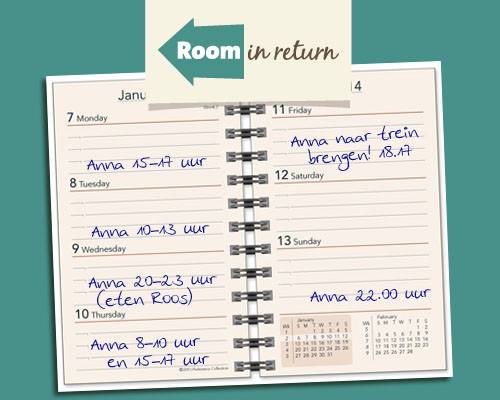 Room in return
Janu
14
7 Monday
Anna 15-17 uur
8 Tuesday
Anna 10-13 uur
9 Wednesday
Anna 20-23 uur
(eten Roos)
10 Thursday
Anna 8-10 uur
en 15-17 uur
11 Friday
Anna naar trein
brengen! 18.17
12 Saturday
13 Sunday
Anna 22.00 uur
January
February